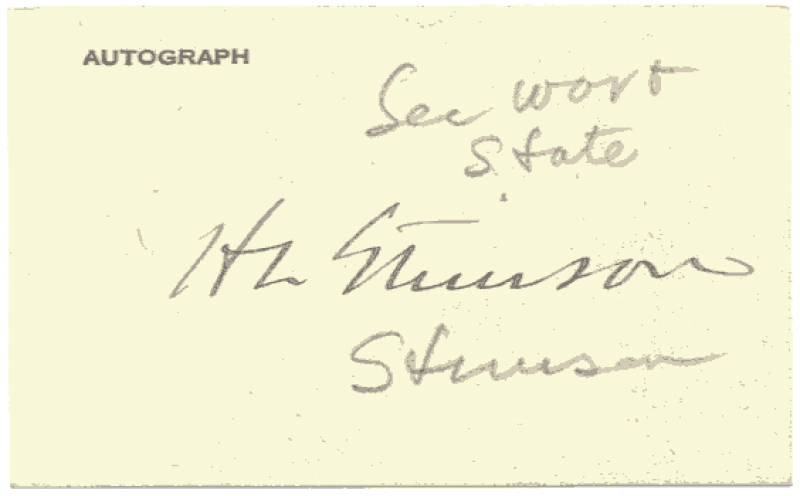 AUTOGRAPH
Sec War +
State
HL Stimson
Stimson